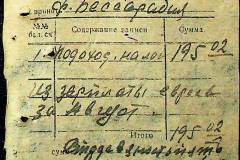 г. Бессарабия
№№ бал. сч. Содержание записи Сумма
1. Подоход. налог 195 02
из зарплаты евреев
за Август.
Итого 195 02
сумма